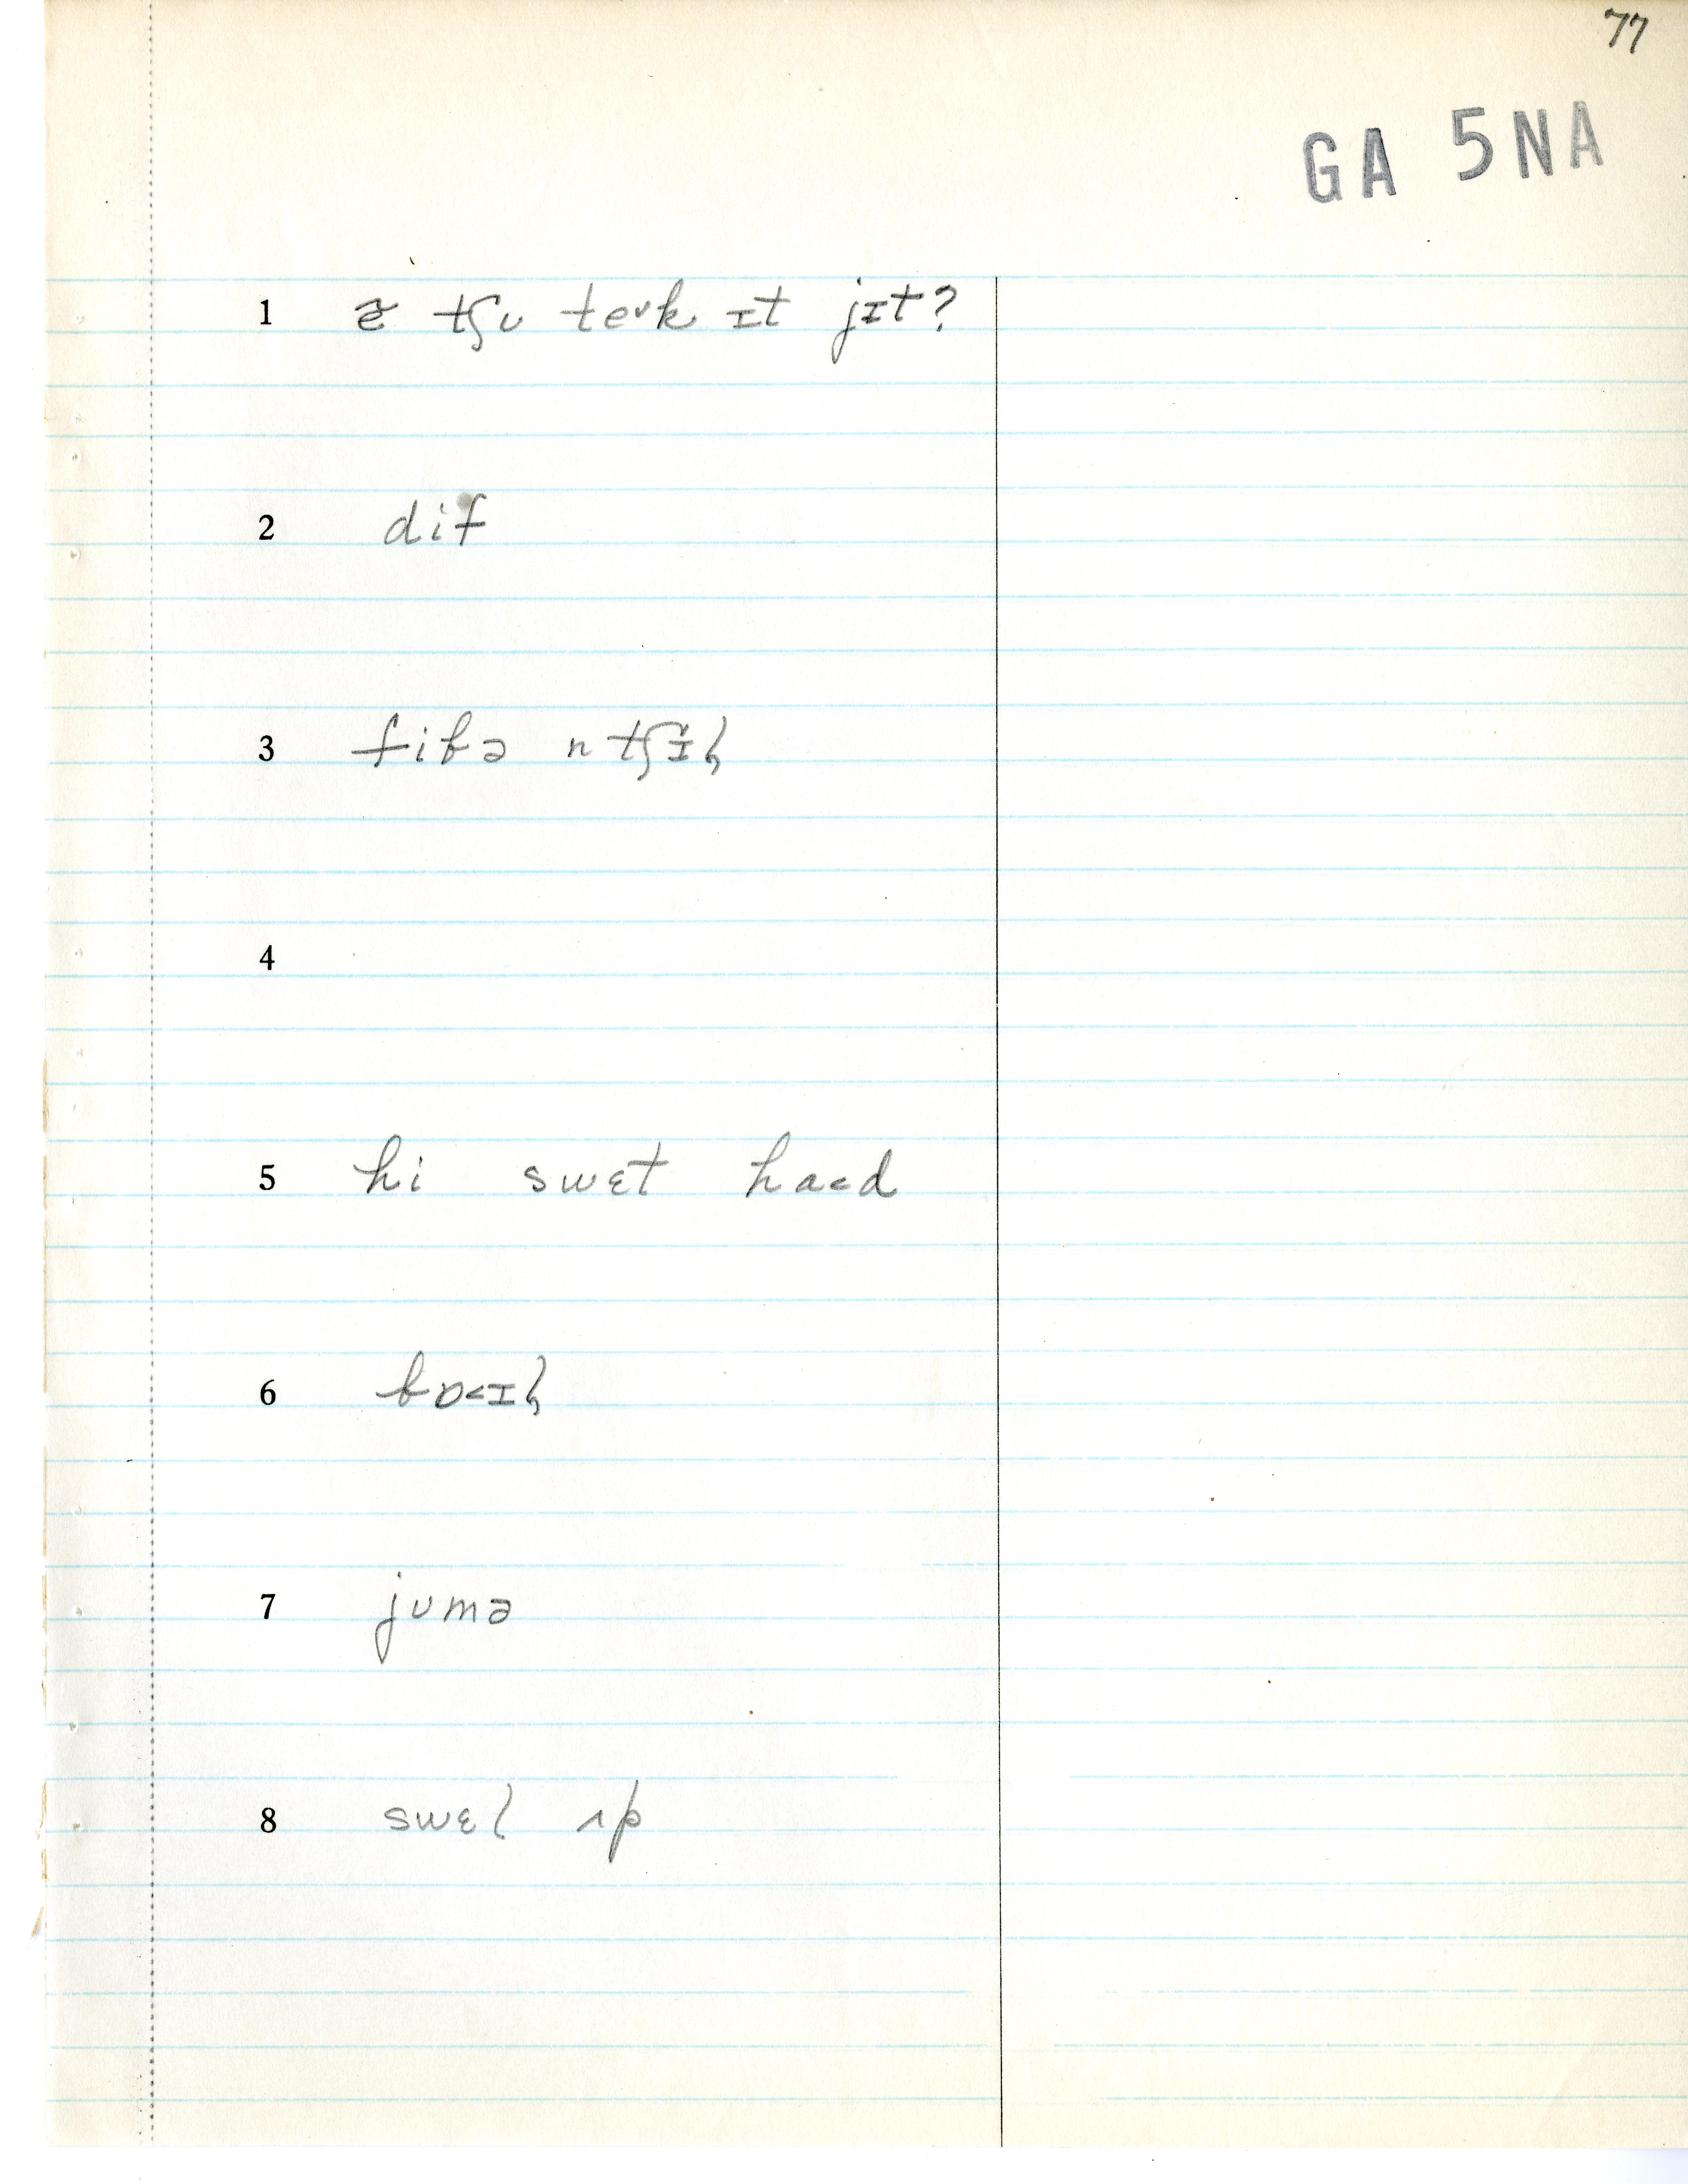 77
GA 5NA
1 tʃu tevk ɪt jɪt?
2 dif
3 fifə n tʃɪl
4
5 hi swɛt ha˂d
6 bɒ˂ɪl
7 jumə
8 swɛl ʌp